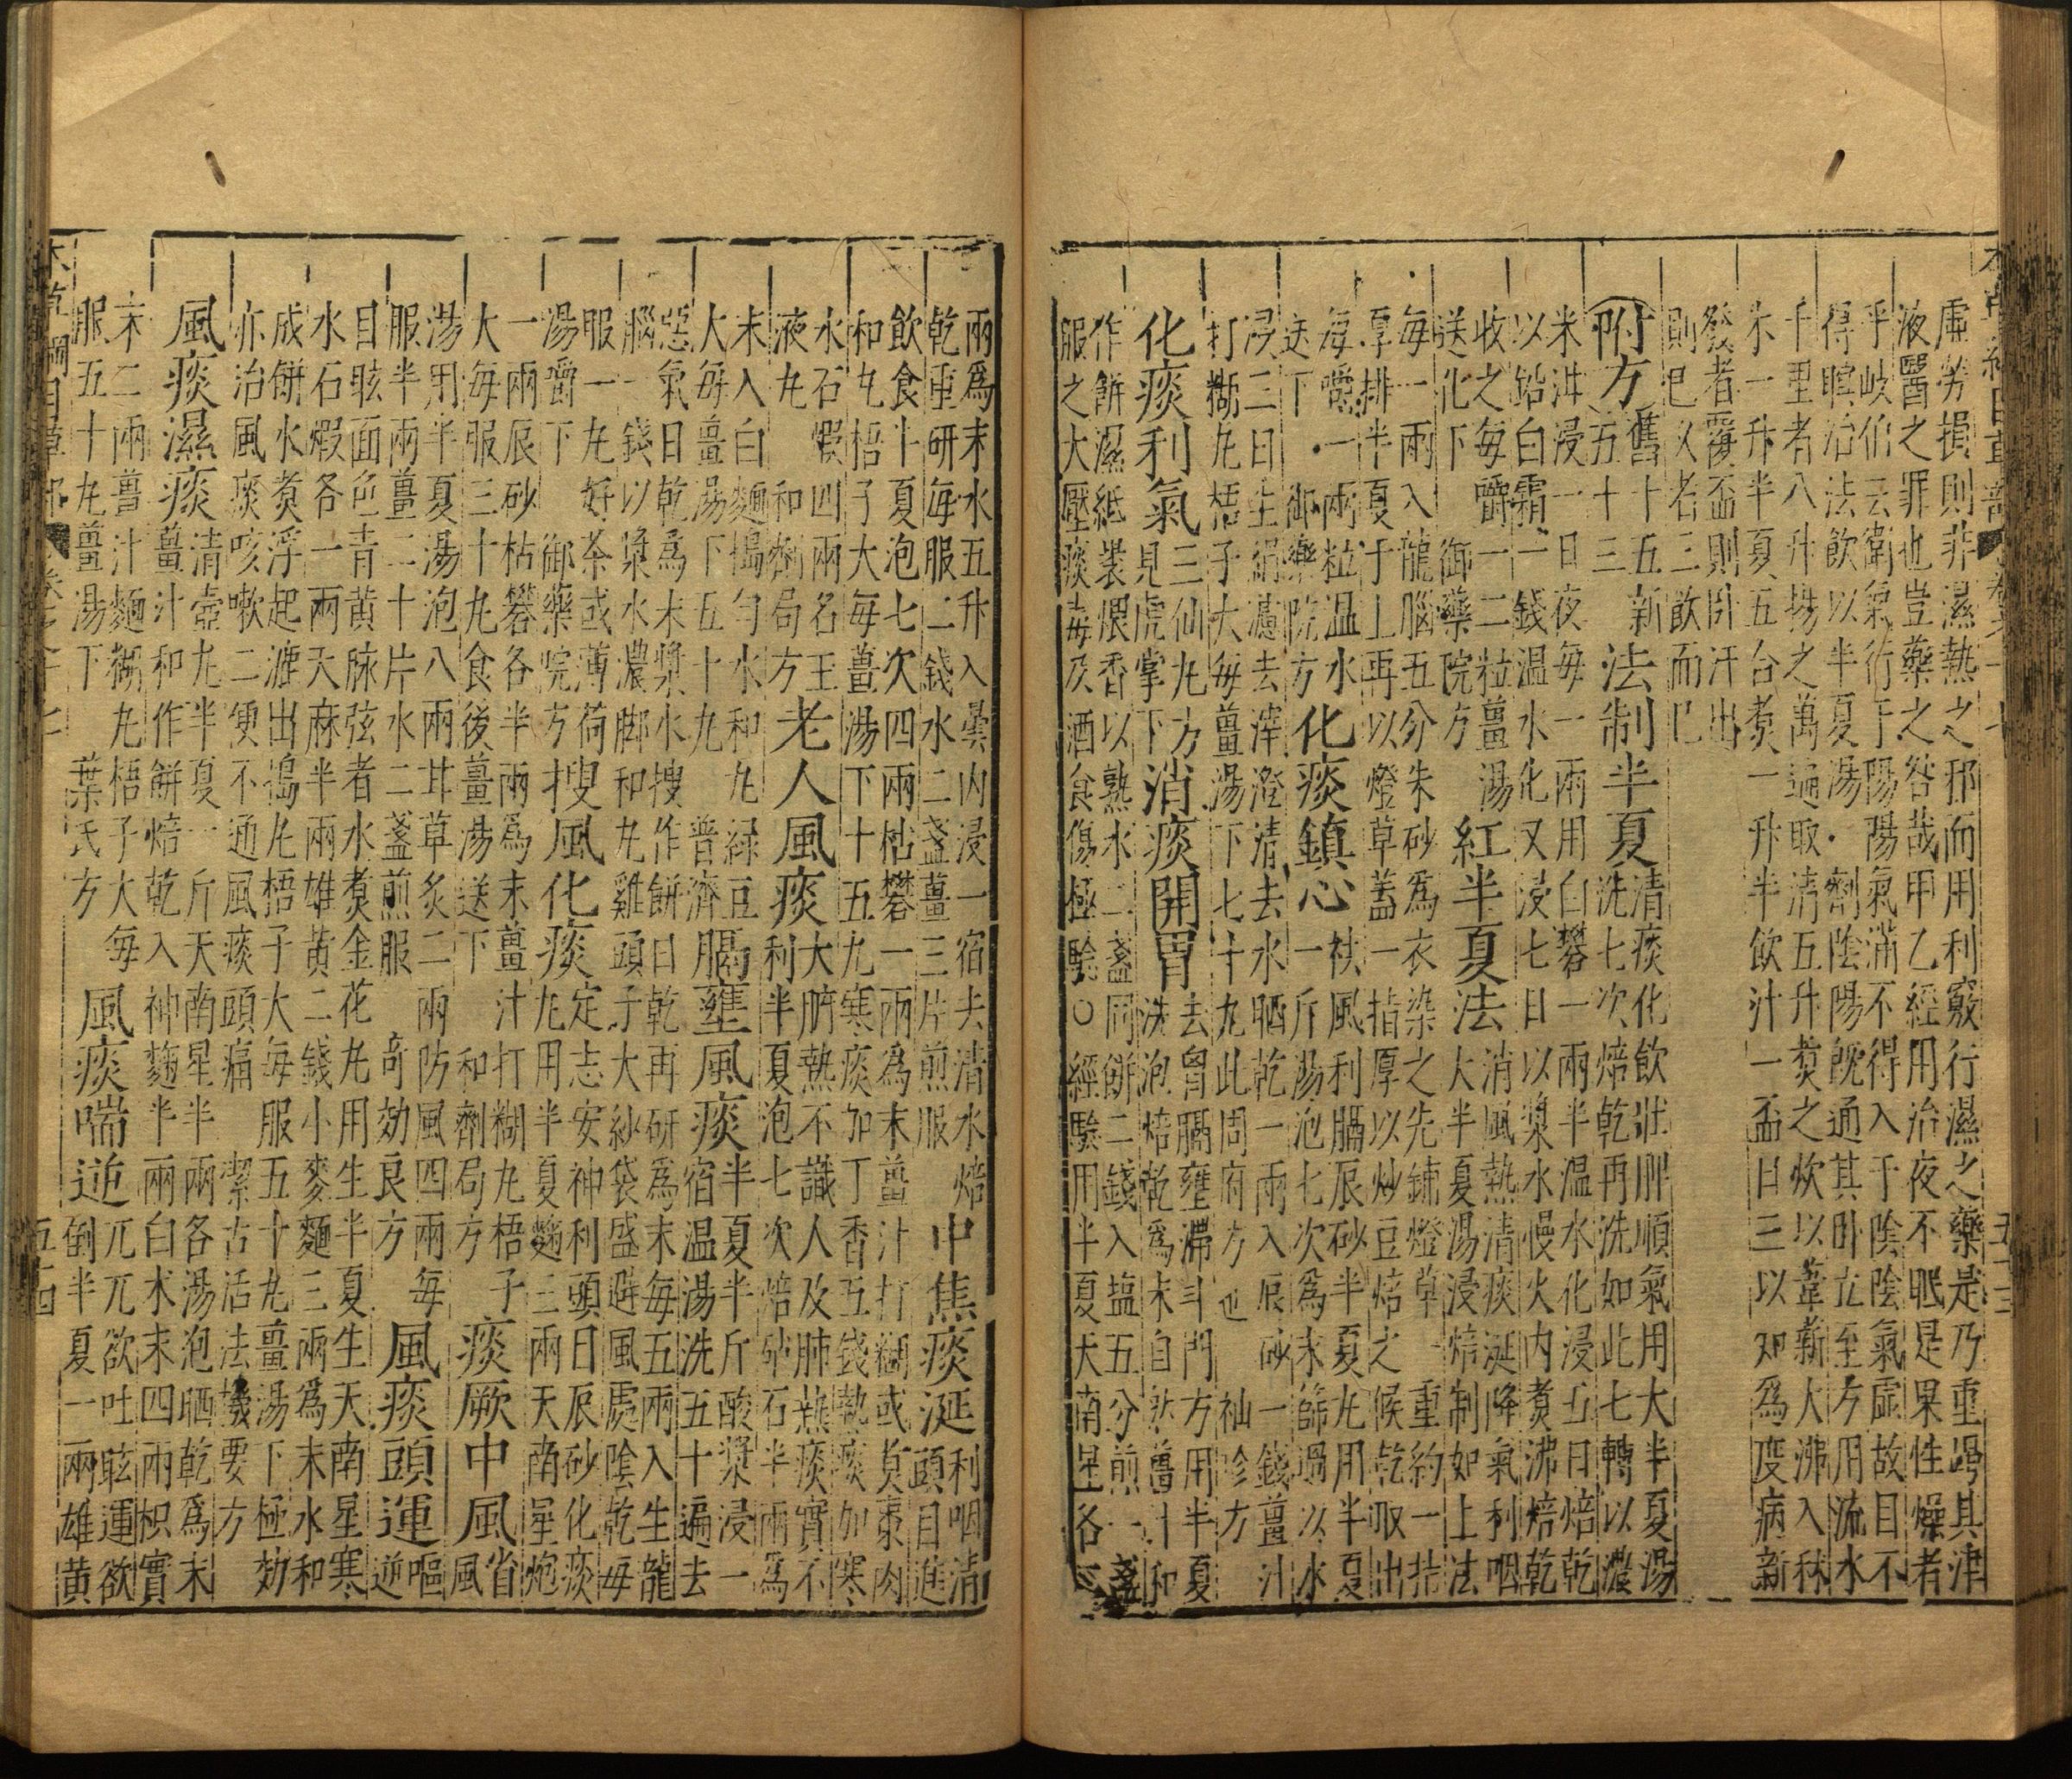 本草綱目草部 卷之十七 五十三
虛勞損則非濕熱之邪而用利竅行濕之藥是乃重竭其津
液醫之罪也豈藥之咎哉甲乙經用治夜不眠是果性燥者
乎岐伯云衛氣行于陽陽氣滿不得入于陰陰氣虛故目不
得瞑治法飲以半夏湯一劑陰陽既通其卧立至方用流水
千里者八升揚之萬遍取清五升煑之炊以葦薪大沸入秫
米一升半夏五合煑一升半飲汁一盃日三以知爲度病新
發者覆盃則卧汗出
則已久者三飲而已
附方
舊十五新
五十三
法制半夏
清痰化飲壯脾順氣用大半夏湯
洗七次焙乾再洗如此七轉以濃
米泔浸一日夜每一兩用白礬一兩半溫水化浸五日焙乾
以鉛白霜一錢温水化又浸七日以漿水慢火內煑沸焙乾
收之每嚼一二粒薑湯
送化下 御藥院方
紅半夏法
消風熱清痰涎降氣利咽
大半夏湯浸焙制如上法
每一兩入龍腦五分朱砂爲衣染之先鋪燈草一重約一指
厚排半夏于上再以燈草蓋一指厚以炒豆焙之候乾取出
每嚼一兩粒温水
送下 御藥院方
化痰鎮心
祛風利膈辰砂半夏丸用半夏
一斤湯泡七次爲末篩過以水
浸三日生絹濾去滓澄清去水晒乾一兩入辰砂一錢薑汁
打糊丸梧子大每薑湯下七十丸此周府方也 袖珍方
化痰利氣
三仙丸方
見虎掌下
消痰開胃
去胷膈壅滯斗門方用半夏
洗泡焙乾爲末自然薑汁和
作餅濕紙裝煨香以熟水二盞同餅二錢入塩五分煎一盞
服之大壓痰毒及酒食傷極驗○經驗用半夏天南星各二
兩爲末水五升入曇內浸一宿去清水焙
乾重研每服二錢水二盞薑三片煎服
中焦痰涎
利咽清
頭目進
飲食半夏泡七次四兩枯礬一兩爲末薑汁打糊或煑棗肉
和丸梧子大每薑湯下十五丸寒痰加丁香五錢熱痰加寒
水石煆四兩名玉
液丸 和劑局方
老人風痰
大腑熱不識人及肺熱痰實不
利半夏泡七次焙硝石半兩爲
末入白麵搗勻水和丸綠豆
大每薑湯下五十丸 普濟
膈壅風痰
半夏半斤酸漿浸一
宿温湯洗五十遍去
惡氣日乾爲末漿水搜作餅日乾再研爲末每五兩入生龍
腦一錢以漿水濃脚和丸雞頭子大紗袋盛避風處陰乾每
服一丸好茶或薄荷
湯嚼下 御藥院方
搜風化痰
定志安神利頭目辰砂化痰
丸用半夏麴三兩天南星炮
一兩辰砂枯礬各半兩爲末薑汁打糊丸梧子
大每服三十丸食後薑湯送下 和劑局方
痰厥中風
省
風
湯用半夏湯泡八兩甘草炙二兩防風四兩每
服半兩薑二十片水二盞煎服 奇効良方
風痰頭運
嘔
逆
目眩面色青黄脉弦者水煑金花丸用生半夏生天南星寒
水石煆各一兩天麻半兩雄黄二錢小麥麵三兩爲末水和
成餅水煑浮起漉出搗丸梧子大每服五十丸薑湯下極効
亦治風痰咳嗽二便不通風痰頭痛 潔古活法機要方
風痰濕痰
清壺丸半夏一斤天南星半兩各湯泡晒乾爲末
薑汁和作餅焙乾入神麴半兩白术末四兩枳實
末二兩薑汁麵糊丸梧子大每
服五十丸薑湯下 葉氏方
風痰喘逆
兀兀欲吐眩運欲
倒半夏一兩雄黄
本草綱目草部 卷之十七 五十四